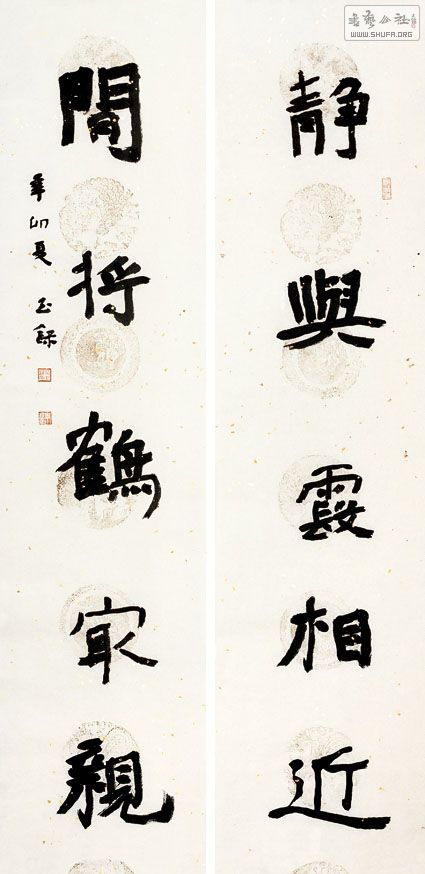 書藝公社
WWW.SHUFA.ORG
静與霞相近
閒將鶴㝡親
辛卯夏